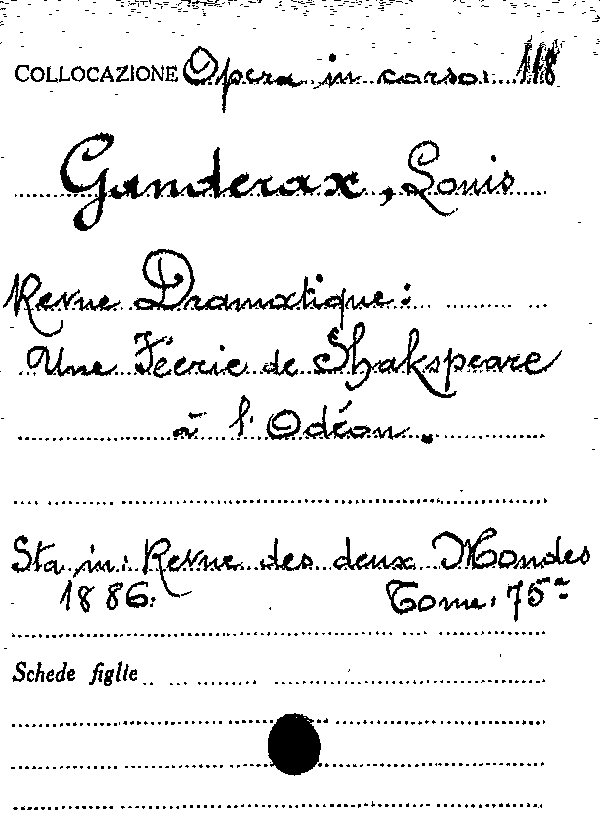 COLLOCAZIONE Opera in corso: 118
Ganderax, Louis
Revue Dramatique:
Une Féerie de Shakspeare
à l'Odéon.
Sta in: Revue des deux Mondes
1886. Tome. 75-
Schede figlie